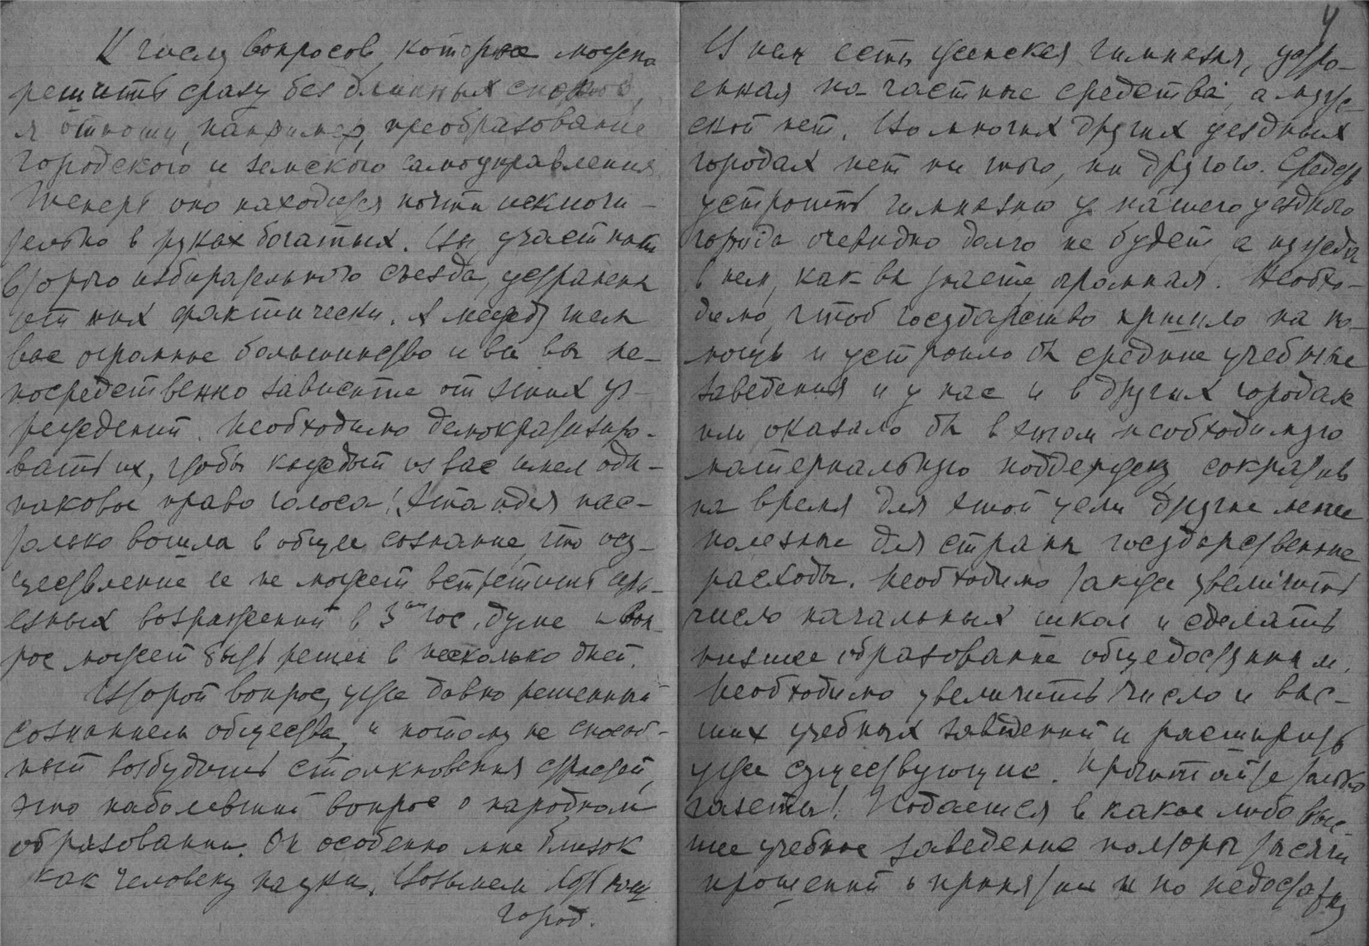 К числу вопросов, которые можно
решить сразу без длинных споров,
я отношу, например, преобразование
городского и земского самоуправления.
Теперь оно находится почти исключи-
тельно в руках богатых. Вы, участники
второго избирательного съезда, устранены
от них фактически. А между тем
вас огромное большинство и вы все не-
посредственно зависите от этих уч-
реждений. Необходимо демократизиро-
вать их, чтобы каждый из вас имел оди-
наковое право голоса! Эта идея нас-
только вошла в общее сознание, что осу-
ществление ее не может встретить серь-
езных возражений в 3ей Гос. думе и воп-
рос может быть решен в несколько дней.
Второй вопрос, уже давно решенный
сознанием общества, и потому не способ-
ный возбудить столкновения страстей,
это наболевший вопрос о народном
образовании. Он особенно мне близок
как человеку науки. Возьмем хоть наш
город.
4
У нас есть женская гимназия, устро-
енная на частные средства, а муж-
ской нет. Во многих других уездных
городах нет ни того, ни другого. Средств
устроить гимназию у нашего уездного
города очевидно долго не будет, а нужда
в ней, как вы знаете огромная. Необхо-
димо, чтоб государство пришло на по-
мощь и устроило бы средние учебные
заведения и у нас и в других городах
или оказало бы в этом необходимую
материальную поддержку, сократив
на время для этой цели другие менее
полезные для страны государственные
расходы. Необходимо также увеличить
число начальных школ и сделать
низшее образование общедоступным.
Необходимо увеличить число и выс-
ших учебных заведений и расширить
уже существующие. Прочитайте только
газеты! Подается в какое либо выс-
шее учебное заведение полторы тысячи
прошений о принятии и по недостатку